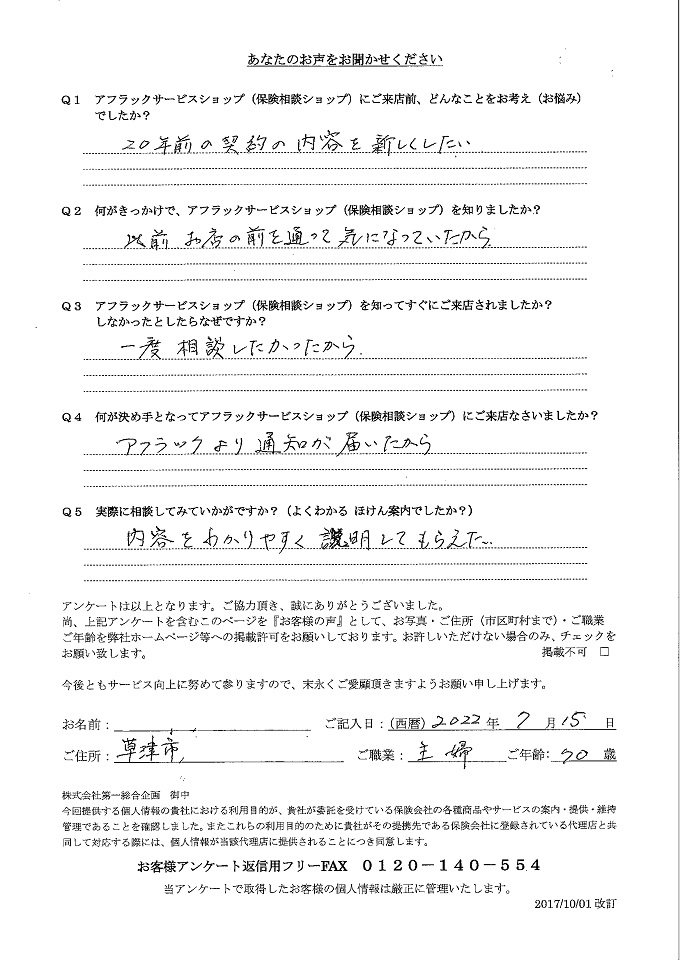 あなたのお声をお聞かせください
Q1 アフラックサービスショップ（保険相談ショップ）にご来店前、どんなことをお考え（お悩み）
でしたか？
20年前の契約の内容を新しくしたい
Q2 何がきっかけで、アフラックサービスショップ（保険相談ショップ）を知りましたか？
以前 お店の前を通って気になっていたから
Q3 アフラックサービスショップ（保険相談ショップ）を知ってすぐにご来店されましたか？
しなかったとしたらなぜですか？
一度 相談したかったから.
Q4 何が決め手となってアフラックサービスショップ（保険相談ショップ）にご来店なさいましたか？
アフラックより通知が届いたから
Q5 実際に相談してみていかがですか？（よくわかる ほけん案内でしたか？）
内容をわかりやすく説明してもらえた.
アンケートは以上となります。ご協力頂き、誠にありがとうございました。
尚、上記アンケートを含むこのページを『お客様の声』として、お写真・ご住所（市区町村まで）・ご職業
ご年齢を弊社ホームページ等への掲載許可をお願いしております。お許しいただけない場合のみ、チェックを
お願い致します。 掲載不可 □
今後ともサービス向上に努めて参りますので、末永くご愛顧頂きますようお願い申し上げます。
お名前： ご記入日：（西暦）2022年 7月15日
ご住所：草津市 ご職業：主婦 ご年齢：70歳
株式会社第一総合企画 御中
今回提供する個人情報の貴社における利用目的が、貴社が委託を受けている保険会社の各種商品やサービスの案内・提供・維持
管理であることを確認しました。またこれらの利用目的のために貴社がその提携先である保険会社に登録されている代理店と共
同して対応する際には、個人情報が当該代理店に提供されることにつき同意します。
お客様アンケート返信用フリーFAX 0120－140－554
当アンケートで取得したお客様の個人情報は厳正に管理いたします。
2017/10/01 改訂